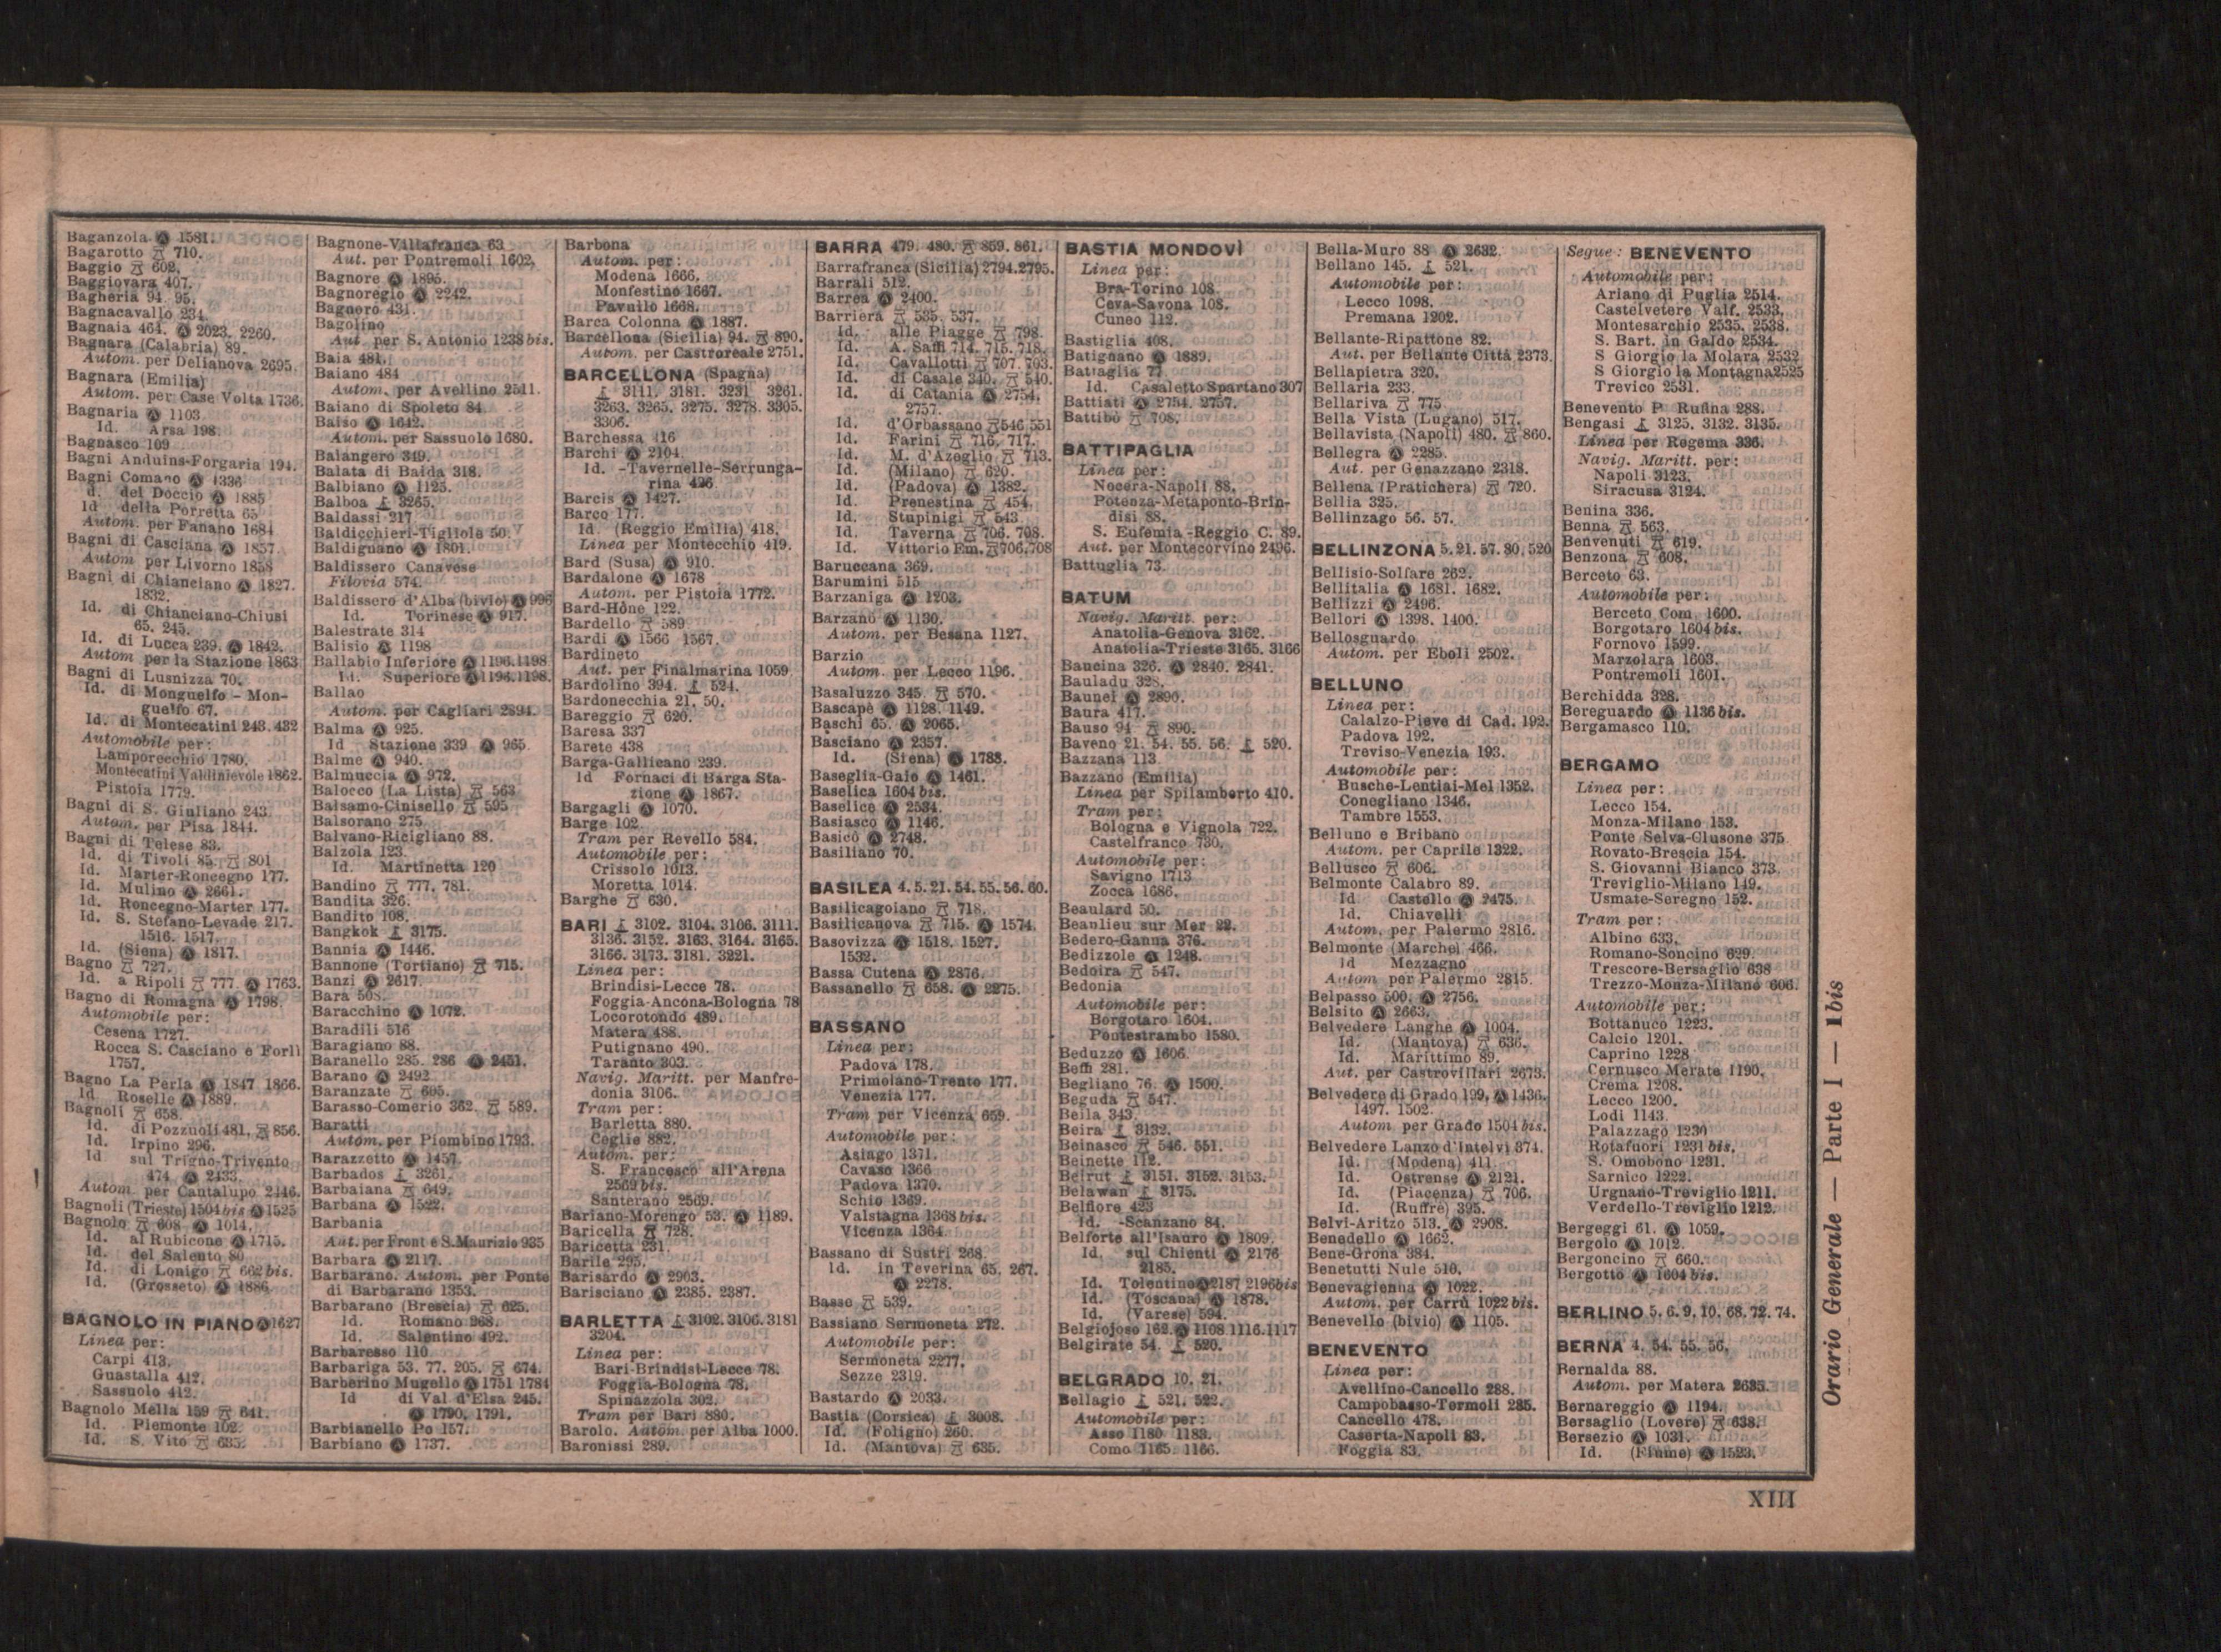 Baganzola Ⓐ 1581.
Bagarotto 710.
Baggio 602.
Baggiovara 407.
Bagheria 94. 95.
Bagnacavallo 234.
Bagnaia 464. Ⓐ 2023. 2260.
Bagnara (Calabria) 89.
Autom. per Delianova 2695.
Bagnara (Emilia)
Autom. per Case Volta 1736.
Bagnaria Ⓐ 1103
Id. Arsa 198.
Bagnasco 109
Bagni Anduins-Forgaria 194.
Bagni Comano Ⓐ 1336
d. del Doccio Ⓐ 1885
Id della Porretta 65
Autom. per Fanano 1684
Bagni di Casciana Ⓐ 1857.
Autom per Livorno 1858
Bagni di Chianciano Ⓐ 1827.
1832.
Id. di Chianciano-Chiusi
65. 245.
Id. di Lucca 239. Ⓐ 1842.
Autom per la Stazione 1863
Bagni di Lusnizza 70.
Id. di Monguelfo - Mon-
guelfo 67.
Id. di Montecatini 243. 432
Automobile per:
Lamporecchio 1780.
Montecatini Valdinievole 1862.
Pistoia 1779.
Bagni di S. Giuliano 243.
Autom. per Pisa 1844.
Bagni di Telese 83.
Id. di Tivoli 85. 801
Id. Marter-Roncegno 177.
Id. Mulino Ⓐ 2661.
Id. Roncegno-Marter 177.
Id. S. Stefano-Levade 217.
1516. 1517.
Id. (Siena) Ⓐ 1817.
Bagno 727.
Id. a Ripoli 777. Ⓐ 1763.
Bagno di Romagna Ⓐ 1798.
Automobile per:
Cesena 1727.
Rocca S. Casciano e Forlì
1757.
Bagno La Perla Ⓐ 1847 1866.
Id Roselle Ⓐ 1889.
Bagnoli 658.
Id. di Pozzuoli 481. 856.
Id. Irpino 296.
Id sul Trigno-Trivento
474. Ⓐ 2433.
Autom. per Cantalupo 2446.
Bagnoli (Trieste) 1504 bis Ⓐ 1525
Bagnolo 608. Ⓐ 1014.
Id. al Rubicone Ⓐ 1715.
Id. del Salento 80
Id. di Lonigo 662 bis.
Id. (Grosseto) Ⓐ 1886
BAGNOLO IN PIANO Ⓐ 1627
Linea per:
Carpi 413.
Guastalla 412.
Sassuolo 412.
Bagnolo Mella 159 641.
Id. Piemonte 102.
Id. S. Vito 635.
Bagnone-Villafranca 63
Aut. per Pontremoli 1602.
Bagnore Ⓐ 1895.
Bagnoregio Ⓐ 2242.
Bagnero 431.
Bagolino
Aut. per S. Antonio 1238 bis.
Baia 481.
Baiano 484
Autom. per Avellino 2511.
Baiano di Spoleto 84.
Baiso Ⓐ 1642.
Autom. per Sassuolo 1680.
Balangero 349.
Balata di Baida 318.
Balbiano Ⓐ 1125.
Balboa 3265.
Baldassi 217
Baldicchieri-Tigliole 50.
Baldignano Ⓐ 1801.
Baldissero Canavese
Filovia 574.
Baldissero d'Alba (bivio) Ⓐ 996
Id. Torinese Ⓐ 917.
Balestrate 314
Balisio Ⓐ 1198
Ballabio Inferiore Ⓐ 1196.1198
Id. Superiore Ⓐ 1196.1198.
Ballao
Autom. per Cagliari 2894.
Balma Ⓐ 925.
Id Stazione 339 Ⓐ 965.
Balme Ⓐ 940.
Balmuccia Ⓐ 972.
Balocco (La Lista) 563
Balsamo-Cinisello 595
Balsorano 275.
Balvano-Ricigliano 88.
Balzola 123
Id. Martinetta 120
Bandino 777. 781.
Bandita 326.
Bandito 108.
Bangkok 3175.
Bannia Ⓐ 1446.
Bannone (Tortiano) 715.
Banzi Ⓐ 2617.
Bara 508.
Baracchino Ⓐ 1072.
Baradili 516
Baragiano 88.
Baranello 285. 286 Ⓐ 2451.
Barano Ⓐ 2492
Baranzate 605.
Barasso-Comerio 362. 589.
Baratti
Autom. per Piombino 1793.
Barazzetto Ⓐ 1457.
Barbados 3261.
Barbaiana 649.
Barbana Ⓐ 1522.
Barbania
Aut. per Front e S. Maurizio 935
Barbara Ⓐ 2117.
Barbarano. Autom. per Ponte
di Barbarano 1353.
Barbarano (Brescia) 625.
Id. Romano 268.
Id. Salentino 492.
Barbaresso 110
Barbariga 53. 77. 205. 674.
Barberino Mugello Ⓐ 1751 1784
Id di Val d'Elsa 245.
Ⓐ 1790. 1791.
Barbianello Po 157.
Barbiano Ⓐ 1737.
Barbona
Autom. per:
Modena 1666.
Monfestino 1667.
Pavullo 1668.
Barca Colonna Ⓐ 1887.
Barcellona (Sicilia) 94. 890.
Autom. per Castroreale 2751.
BARCELLONA (Spagna)
3111. 3181. 3231 3261.
3263. 3265. 3275. 3278. 3305.
3306.
Barchessa 116
Barchi Ⓐ 2104.
Id. -Tavernelle-Serrunga-
rina 426
Barcis Ⓐ 1427.
Barco 177.
Id (Reggio Emilia) 418.
Linea per Montecchio 419.
Bard (Susa) Ⓐ 910.
Bardalone Ⓐ 1678
Autom. per Pistoia 1772.
Bard-Hône 122.
Bardello 589
Bardi Ⓐ 1566 1567.
Bardineto
Aut. per Finalmarina 1059
Bardolino 394. 524.
Bardonecchia 21. 50.
Bareggio 626.
Baresa 337
Barete 438
Barga-Gallicano 239.
Id Fornaci di Barga Sta-
zione Ⓐ 1867.
Bargagli Ⓐ 1070.
Barge 102
Tram per Revello 584.
Automobile per:
Crissolo 1013.
Moretta 1014.
Barghe 630.
BARI 3102. 3104. 3106. 3111.
3136. 3152. 3163. 3164. 3165.
3166. 3173. 3181. 3221.
Linea per:
Brindisi-Lecce 78.
Foggia-Ancona-Bologna 78
Locorotondo 489.
Matera 488.
Putignano 490.
Taranto 303.
Navig. Maritt. per Manfre-
donia 3106.
Tram per:
Barletta 880.
Ceglie 882.
Autom. per:
S. Francesco all'Arena
2569 bis.
Santeramo 2569.
Bariano-Morengo 53. Ⓐ 1189.
Baricella 728.
Baricetta 231.
Barile 295.
Barisardo Ⓐ 2903.
Barisciano Ⓐ 2385. 2387.
BARLETTA 3102. 3106. 3181
3204.
Linea per:
Bari-Brindisi-Lecce 78.
Foggia-Bologna 78.
Spinazzola 302.
Tram per Bari 880.
Barolo. Autom. per Alba 1000.
Baronissi 289.
BARRA 479. 480. 859. 861.
Barrafranca (Sicilia) 2794.2795.
Barrali 512.
Barrea Ⓐ 2400.
Barriera 535. 537.
Id. alle Piagge 798.
Id. A. Saffi 714. 715. 718.
Id. Cavallotti 707. 763.
Id. di Casale 340. 540.
Id. di Catania Ⓐ 2754.
2757.
Id. d'Orbassano 546 551
Id. Farini 716. 717.
Id. M. d'Azeglio 713.
Id. (Milano) 620.
Id. (Padova) Ⓐ 1382.
Id. Prenestina 454.
Id. Stupinigi 543
Id. Taverna 706. 708.
Id. Vittorio Em. 706.708
Baruccana 369.
Barumini 515
Barzaniga Ⓐ 1203.
Barzanò Ⓐ 1130.
Autom. per Besana 1127.
Barzio
Autom. per Lecco 1196.
Basaluzzo 345. 570.
Bascapè Ⓐ 1128. 1149.
Baschi 65. Ⓐ 2065.
Basciano Ⓐ 2357.
Id. (Siena) Ⓐ 1788.
Baseglia-Gaio Ⓐ 1461.
Baselica 1604 bis.
Baselice Ⓐ 2534.
Basiasco Ⓐ 1146.
Basicò Ⓐ 2748.
Basiliano 70.
BASILEA 4. 5. 21. 54. 55. 56. 60.
Basilicagoiano 718.
Basilicanova 715. Ⓐ 1574.
Basovizza Ⓐ 1518. 1527.
1532.
Bassa Cutena Ⓐ 2876.
Bassanello 658. Ⓐ 2275.
BASSANO
Linea per:
Padova 178.
Primolano-Trento 177.
Venezia 177.
Tram per Vicenza 659.
Automobile per:
Asiago 1371.
Cavaso 1366
Padova 1370.
Schio 1369.
Valstagna 1368 bis.
Vicenza 1364.
Bassano di Sustri 268.
Id. in Teverina 65. 267.
Ⓐ 2278.
Basse 539.
Bassiano Sermoneta 272.
Automobile per:
Sermoneta 2277.
Sezze 2319.
Bastardo Ⓐ 2033.
Bastia (Corsica) 3008.
Id. (Foligno) 260.
Id. (Mantova) 635.
BASTIA MONDOVÌ
Linea per:
Bra-Torino 108.
Ceva-Savona 108.
Cuneo 112.
Bastiglia 408.
Batignano Ⓐ 1889.
Battaglia 77
Id. Casaletto Spartano 307
Battiati Ⓐ 2754. 2757.
Battibò 708.
BATTIPAGLIA
Linea per:
Nocera-Napoli 88.
Potenza-Metaponto-Brin-
disi 88.
S. Eufemia-Reggio C. 89.
Aut. per Montecorvino 2496.
Battuglia 73.
BATUM
Navig. Maritt. per:
Anatolia-Genova 3162.
Anatolia-Trieste 3165. 3166
Baucina 326. Ⓐ 2840. 2841.
Bauladu 328.
Baunei Ⓐ 2890.
Baura 417.
Bauso 94 890.
Baveno 21. 54. 55. 56. 520.
Bazzana 113
Bazzano (Emilia)
Linea per Spilamberto 410.
Tram per:
Bologna e Vignola 722.
Castelfranco 730.
Automobile per:
Savigno 1713
Zocca 1686.
Beaulard 50.
Beaulieu sur Mer 22.
Bedero-Ganna 376.
Bedizzole Ⓐ 1248.
Bedoira 547.
Bedonia
Automobile per:
Borgotaro 1604.
Pontestrambo 1580.
Beduzzo Ⓐ 1606.
Beffi 281.
Begliano 76. Ⓐ 1500.
Beguda 547.
Beila 343.
Beira 3132.
Beinasco 546. 551.
Beinette 112.
Beirut 3151. 3152. 3153.
Belawan 3175.
Belfiore 423
Id. -Scanzano 84.
Belforte all'Isauro Ⓐ 1809.
Id. sul Chienti Ⓐ 2176
2185.
Id. Tolentino Ⓐ 2187 2196 bis
Id. (Toscana) Ⓐ 1878.
Id. (Varese) 594.
Belgiojoso 162. Ⓐ 1108.1116.1117
Belgirate 54. 520.
BELGRADO 10. 21.
Bellagio 521. 522.
Automobile per:
Asso 1180. 1183.
Como 1165. 1166.
Bella-Muro 88 Ⓐ 2632.
Bellano 145. 521.
Automobile per:
Lecco 1098.
Premana 1202.
Bellante-Ripattone 82.
Aut. per Bellante Città 2373.
Bellapietra 320.
Bellaria 233.
Bellariva 775.
Bella Vista (Lugano) 517.
Bellavista (Napoli) 480. 860.
Bellegra Ⓐ 2285.
Aut. per Genazzano 2318.
Bellena (Pratichera) 720.
Bellia 325.
Bellinzago 56. 57.
BELLINZONA 5. 21. 57. 80. 520
Bellisio-Solfare 262.
Bellitalia Ⓐ 1681. 1682.
Bellizzi Ⓐ 2496.
Bellori Ⓐ 1398. 1400.
Bellosguardo
Autom. per Eboli 2502.
BELLUNO
Linea per:
Calalzo-Pieve di Cad. 192.
Padova 192.
Treviso-Venezia 193.
Automobile per:
Busche-Lentiai-Mel 1352.
Conegliano 1346.
Tambre 1553.
Belluno e Bribano
Autom. per Caprile 1322.
Bellusco 606.
Belmonte Calabro 89.
Id. Castello Ⓐ 2475.
Id. Chiavelli
Autom. per Palermo 2816.
Belmonte (Marche) 466.
Id Mezzagno
Autom per Palermo 2815.
Belpasso 500. Ⓐ 2756.
Belsito Ⓐ 2663.
Belvedere Langhe Ⓐ 1004.
Id. (Mantova) 636.
Id. Marittimo 89.
Aut. per Castrovillari 2673.
Belvedere di Grado 199. Ⓐ 1436.
1497. 1502.
Autom per Grado 1504 bis.
Belvedere Lanzo d'Intelvi 374.
Id. (Modena) 411.
Id. Ostrense Ⓐ 2121.
Id. (Piacenza) 706.
Id. (Ruffrè) 395.
Belvi-Aritzo 513. Ⓐ 2908.
Benedello Ⓐ 1662.
Bene-Grona 384.
Benetutti Nule 510.
Benevagienna Ⓐ 1022.
Autom. per Carrù 1022 bis.
Benevello (bivio) Ⓐ 1105.
BENEVENTO
Linea per:
Avellino-Cancello 288.
Campobasso-Termoli 285.
Cancello 478.
Caserta-Napoli 83.
Foggia 83.
Segue: BENEVENTO
Automobile per:
Ariano di Puglia 2514.
Castelvetere Valf. 2533.
Montesarchio 2535. 2538.
S. Bart. in Galdo 2534.
S Giorgio la Molara 2532
S Giorgio la Montagna 2525
Trevico 2531.
Benevento P. Rufina 288.
Bengasi 3125. 3132. 3135.
Linea per Regema 336.
Navig. Maritt. per:
Napoli 3123.
Siracusa 3124.
Benina 336.
Benna 563.
Benvenuti 619.
Benzona 608.
Berceto 63.
Automobile per:
Berceto Com. 1600.
Borgotaro 1604 bis.
Fornovo 1599.
Marzolara 1603.
Pontremoli 1601.
Berchidda 328.
Bereguardo Ⓐ 1136 bis.
Bergamasco 110.
BERGAMO
Linea per:
Lecco 154.
Monza-Milano 153.
Ponte Selva-Clusone 375
Rovato-Brescia 154.
S. Giovanni Bianco 373.
Treviglio-Milano 149.
Usmate-Seregno 152.
Tram per:
Albino 633.
Romano-Soncino 629.
Trescore-Bersaglio 638
Trezzo-Monza-Milano 606.
Automobile per:
Bottanuco 1223.
Calcio 1201.
Caprino 1228
Cernusco Merate 1190.
Crema 1208.
Lecco 1200.
Lodi 1143.
Palazzago 1230
Rotafuori 1231 bis.
S. Omobono 1231.
Sarnico 1222.
Urgnano-Treviglio 1211.
Verdello-Treviglio 1212.
Bergeggi 61. Ⓐ 1059.
Bergolo Ⓐ 1012.
Bergoncino 660.
Bergotto Ⓐ 1604 bis.
BERLINO 5. 6. 9. 10. 68. 72. 74.
BERNA 4. 54. 55. 56.
Bernalda 88.
Autom. per Matera 2635.
Bernareggio Ⓐ 1194.
Bersaglio (Lovere) 638.
Bersezio Ⓐ 1031.
Id. (Fiume) Ⓐ 1523.
Orario Generale — Parte I — 1 bis
XIII